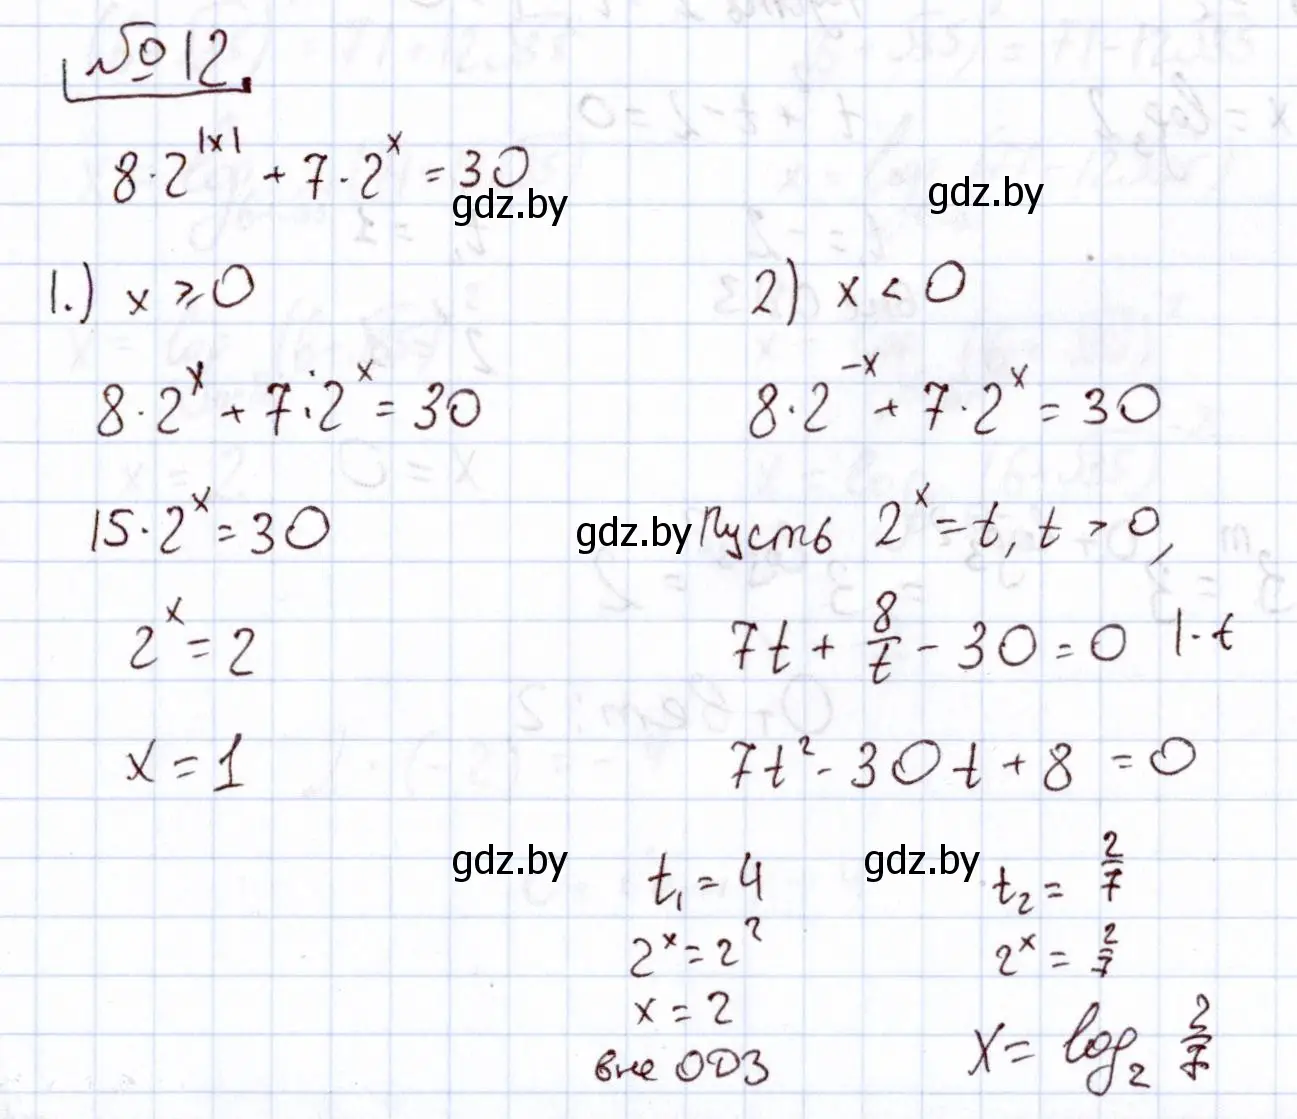 № 12.
8·2^|x| + 7·2^x = 30
gdz.by
gdz.by
1.) x ≥ 0
8·2^x + 7·2^x = 30
15·2^x = 30
2^x = 2
x = 1
2) x < 0
8·2^-x + 7·2^x = 30
gdz.by
Пусть 2^x = t, t > 0,
7t + 8/t - 30 = 0 |·t
7t² - 30t + 8 = 0
gdz.by
gdz.by
t₁ = 4
2^x = 2²
x = 2
вне ОДЗ
t₂ = 2/7
2^x = 2/7
x = log₂ 2/7